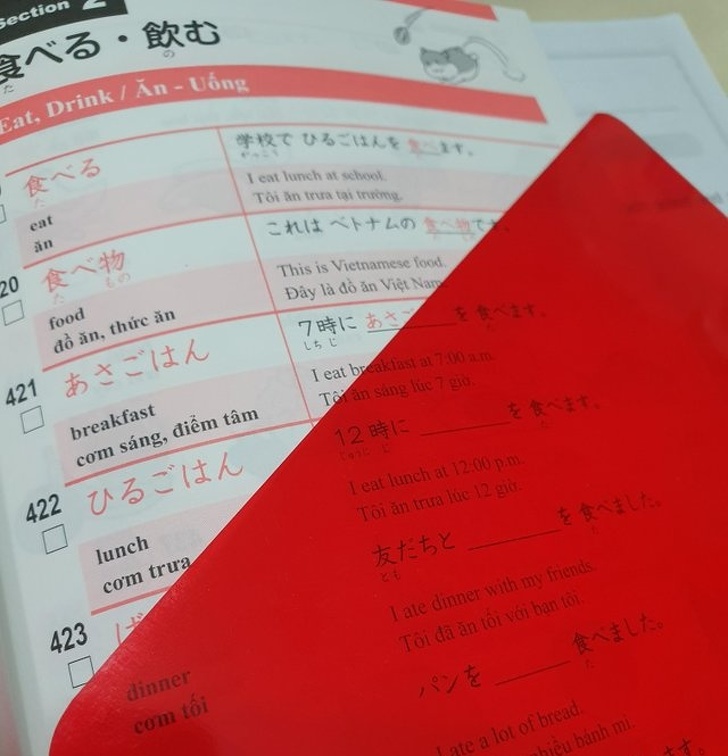 Section 2
食べる・飲む
た
の
Eat, Drink / Ăn - Uống
食べる
た
eat
ăn
学校で ひるごはんを 食べます。
がっこう
I eat lunch at school.
Tôi ăn trưa tại trường.
20
食べ物
た もの
food
đồ ăn, thức ăn
これは ベトナムの 食べ物です。
This is Vietnamese food.
Đây là đồ ăn Việt Nam
421
あさごはん
breakfast
cơm sáng, điểm tâm
7時に あさご を 食べます。
しちじ
た
I eat breakfast at 7:00 a.m.
Tôi ăn sáng lúc 7 giờ.
422
ひるごはん
lunch
cơm trưa
12時に を 食べます。
じゅうにじ
た
I eat lunch at 12:00 p.m.
Tôi ăn trưa lúc 12 giờ.
423
ば
dinner
cơm tối
友だちと を 食べました。
とも
た
I ate dinner with my friends.
Tôi đã ăn tối với bạn tôi.
パンを 食べました。
た
I ate a lot of bread.
nhiều bánh mì.
ます。